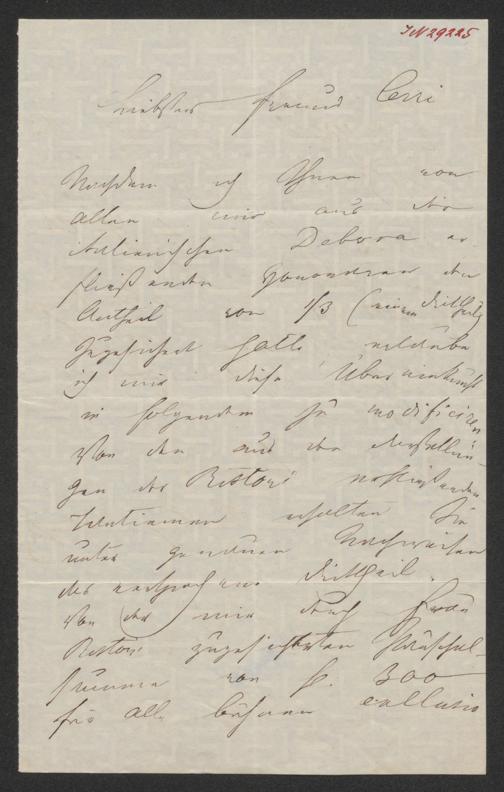 IN 29225
Liebster Freund Cerri
Nachdem ich Ihnen von
allen mir aus der
italienischen Debora er
fließenden Honoraren den
Antheil von 1/3 (einem Drittheil)
zugesichert hatte erlaube
ich mir diese Übereinkunft
in folgendem zu modificiren
Von den aus den Vorstellun-
gen der Ristori
Tantiemen erhalten Sie
unter genauen Nachweisen
des Drittheil.
Von der mir durch Frau
Ristori zugesicherten Pauschal-
summe von fl. 300
für alle Bühnen